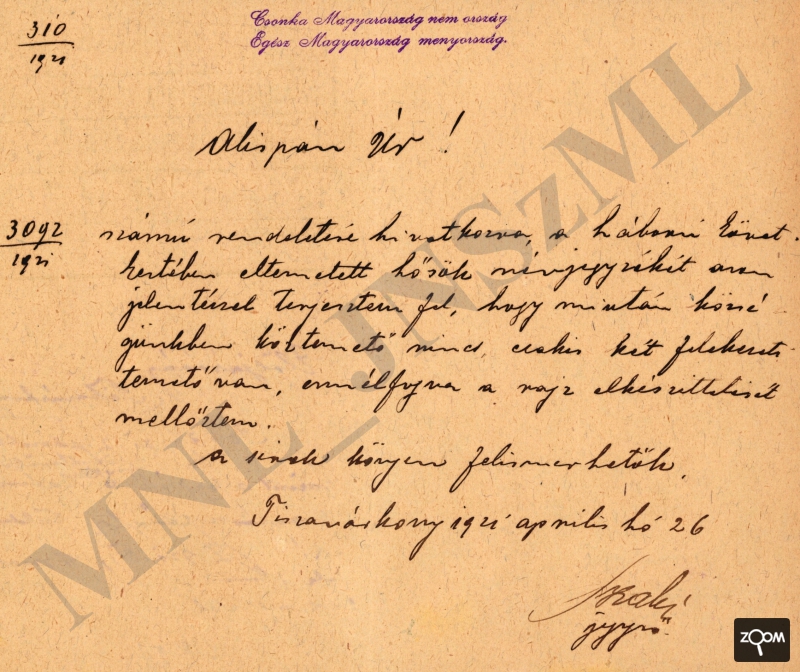 310
1921
Csonka Magyarország nem ország
Egész Magyarország menyország.
Alispán Úr!
3092
1921
számú rendeletére hivatkozva, a háború követ-
keztében eltemetett hősök névjegyzékét azon
jelentéssel terjesztem fel, hogy miután közsé
günkben köztemető nincs, csakis két felekezeti
temető van, ennélfogva a rajz elkészittetését
mellőztem.
a sirok könyen felismerhetők.
Tiszavárkony 1921 április hó 26
jegyző
MNL_JNSzML
ZOOM